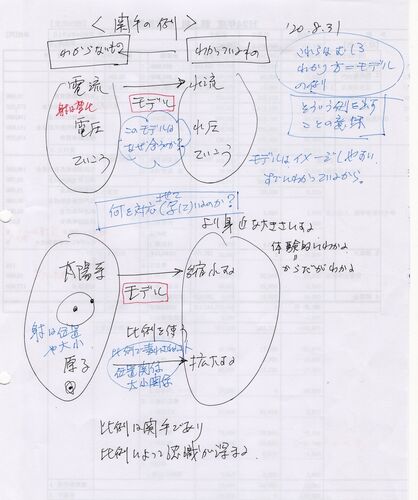 ＜関手の例＞
'20.8.31
わからないもの
わかっているもの
これらはむしろ
わかり方=モデル
の例
そういう例を出す
ことの意味
電流
水流
射は変化
モデル
電圧
水圧
このモデルは
なぜ合うのか?
ていこう
ていこう
モデルはイメージしやすい
すでにわかっているから。
何を対応させて(写して)いるのか?
より身近な大きさにする
体験的にわかる
=
からだがわかる
太陽系
縮小する
モデル
射は位置
や大小
比例を使う
位置関係
大小関係
原子
拡大する
比例は関手であり
比例によって認識が深まる